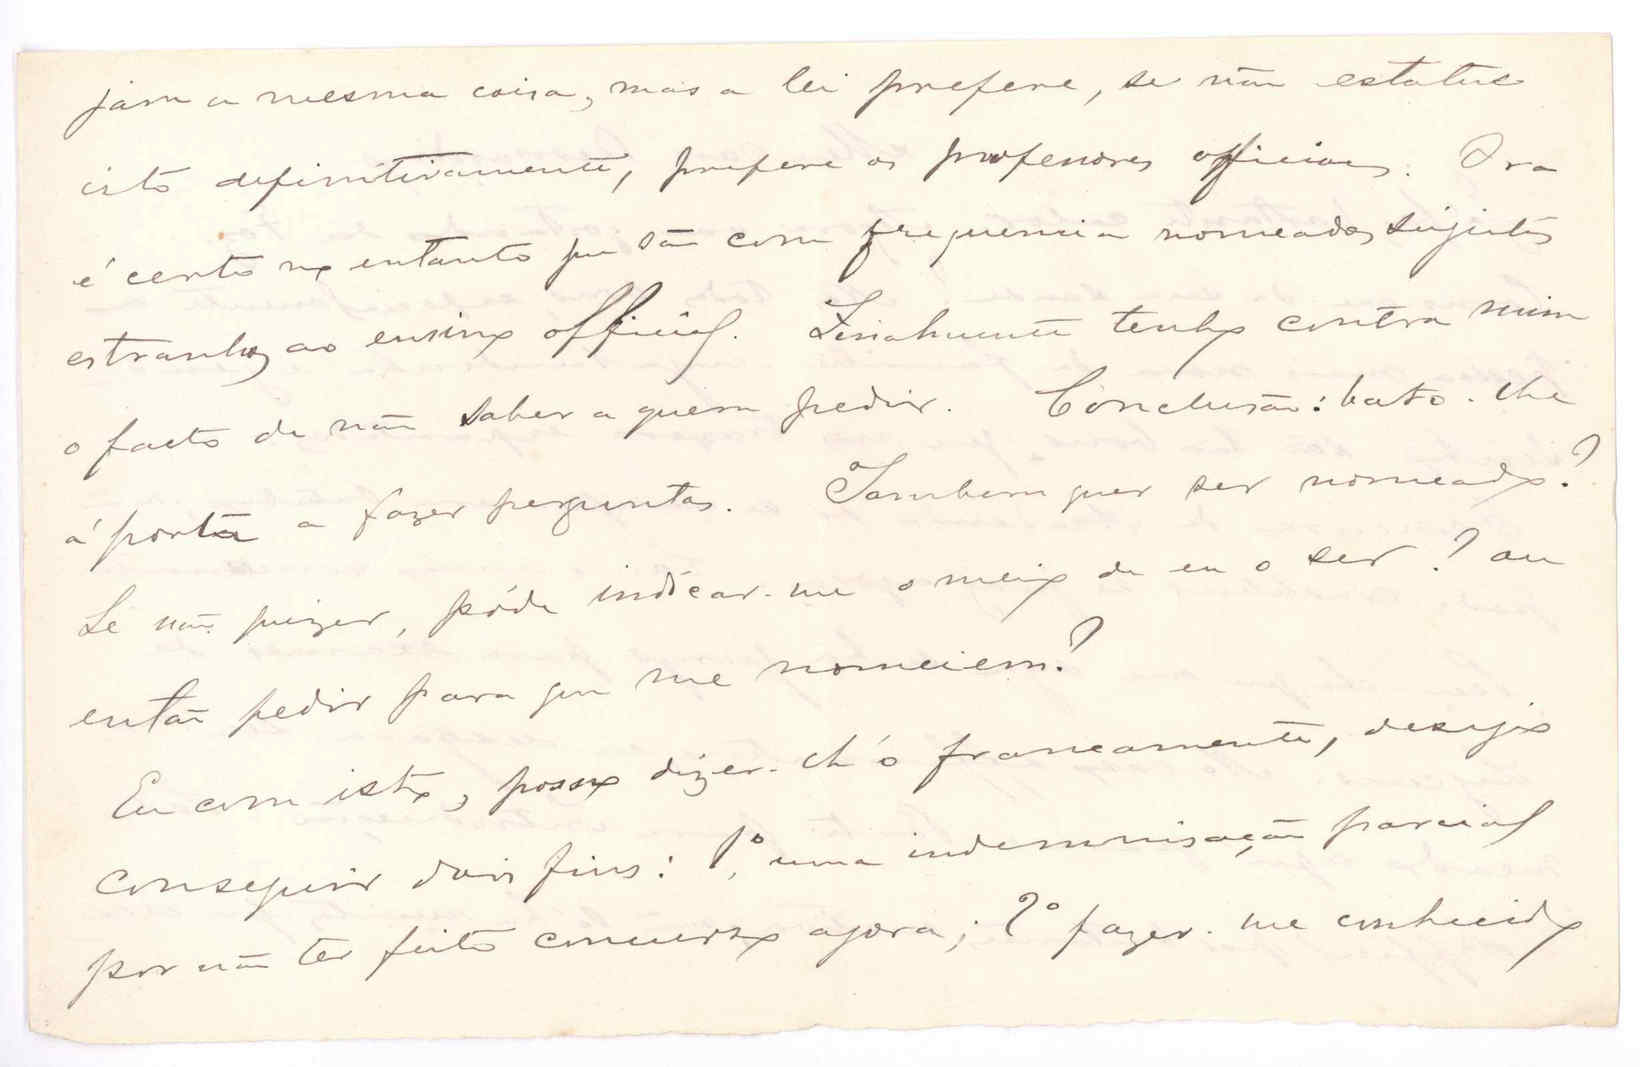 jam a mesma coisa, mas a lei prefere, se não estatue
isto definitivamente, prefere os professores officiaes. Ora
é certo no entanto que são com frequencia nomeados sujeitos
estranhos ao ensino official. Finalmente tenho contra mim
o facto de não saber a quem pedir. Conclusão: bato-lhe
á porta a fazer perguntas. Tambem quer ser nomeado?
Se não quizer, póde indicar-me o meio de eu o ser? ou
então pedir para que me nomeiem?
Eu com isto, posso dizer-lh'o francamente, desejo
conseguir dois fins: 1.º uma indemnisação parcial
por não ter feito concurso agora; 2º fazer-me conhecido